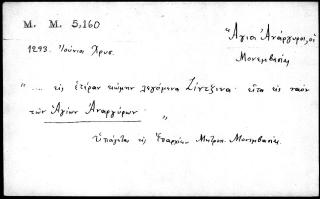 M. M. 5,160
Ἅγιοι Ἀνάργυροι, οἱ
Μονεμβασίας
1293. Ἰούνιος Χρυσ.
"... εἰς ἑτέραν κώμην λεγόμενα Ζίντζινα· εἶτα εἰς ναὸν
τῶν Ἁγίων Ἀναργύρων. "
Ὑπάγεται εἰς Ἐπαρχίαν Μητροπ. Μονεμβασίας.